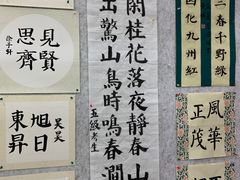 二春千野綠
因化九州紅
風華
正茂
閑桂花落夜靜春山
出驚山鳥時鳴春澗
五級考生
見賢
思齊
徐子軒
旭日
東昇
吴昊